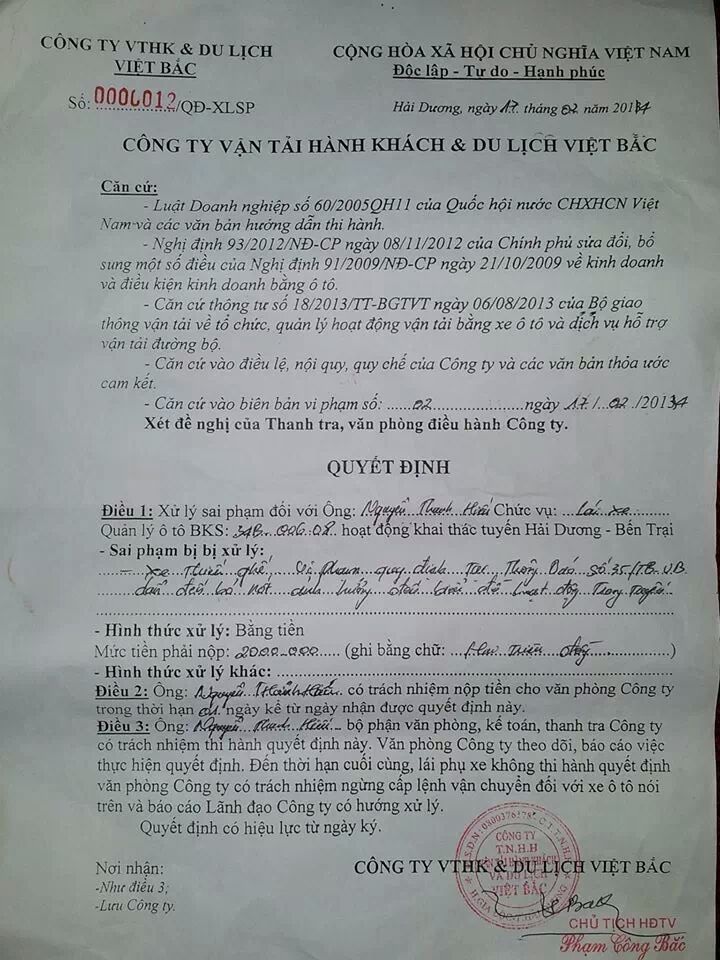 CÔNG TY VTHK & DU LỊCH
VIỆT BẮC
CỘNG HÒA XÃ HỘI CHỦ NGHĨA VIỆT NAM
Độc lập - Tự do - Hạnh phúc
Số: 0000012/QĐ-XLSP
Hải Dương, ngày 17 tháng 02 năm 2014
CÔNG TY VẬN TẢI HÀNH KHÁCH & DU LỊCH VIỆT BẮC
Căn cứ:
- Luật Doanh nghiệp số 60/2005QH11 của Quốc hội nước CHXHCN Việt
Nam và các văn bản hướng dẫn thi hành.
- Nghị định 93/2012/NĐ-CP ngày 08/11/2012 của Chính phủ sửa đổi, bổ
sung một số điều của Nghị định 91/2009/NĐ-CP ngày 21/10/2009 về kinh doanh
và điều kiện kinh doanh bằng ô tô.
- Căn cứ thông tư số 18/2013/TT-BGTVT ngày 06/08/2013 của Bộ giao
thông vận tải về tổ chức, quản lý hoạt động vận tải bằng xe ô tô và dịch vụ hỗ trợ
vận tải đường bộ.
- Căn cứ vào điều lệ, nội quy, quy chế của Công ty và các văn bản thỏa ước
cam kết.
- Căn cứ vào biên bản vi phạm số: ......02......................ngày 17/..02../2014
Xét đề nghị của Thanh tra, văn phòng điều hành Công ty.
QUYẾT ĐỊNH
Điều 1: Xử lý sai phạm đối với Ông: Nguyễn Thanh Chức vụ: Lái xe
Quản lý ô tô BKS: 34B-006.08 hoạt động khai thác tuyến Hải Dương - Bến Trại
- Sai phạm bị bị xử lý:
- Xe Thiếu ghế, vi phạm quy định Tại Thông Báo Số 35/TB-V.B
- Hình thức xử lý: Bằng tiền
Mức tiền phải nộp: 2000.000 (ghi bằng chữ: Hai Triệu đồng)
- Hình thức xử lý khác:
Điều 2: Ông: Nguyễn Thanh có trách nhiệm nộp tiền cho văn phòng Công ty
trong thời hạn 01 ngày kể từ ngày nhận được quyết định này.
Điều 3: Ông: Nguyễn Thanh bộ phận văn phòng, kế toán, thanh tra Công ty
có trách nhiệm thi hành quyết định này. Văn phòng Công ty theo dõi, báo cáo việc
thực hiện quyết định. Đến thời hạn cuối cùng, lái phụ xe không thi hành quyết định
văn phòng Công ty có trách nhiệm ngừng cấp lệnh vận chuyển đối với xe ô tô nói
trên và báo cáo Lãnh đạo Công ty có hướng xử lý.
Quyết định có hiệu lực từ ngày ký.
Nơi nhận:
-Như điều 3;
-Lưu Công ty.
CÔNG TY VTHK & DU LỊCH VIỆT BẮC
CÔNG TY
T.N.H.H
VẬN TẢI HÀNH KHÁCH
VÀ DU LỊCH
VIỆT BẮC
CHỦ TỊCH HĐTV
Phạm Công Bắc